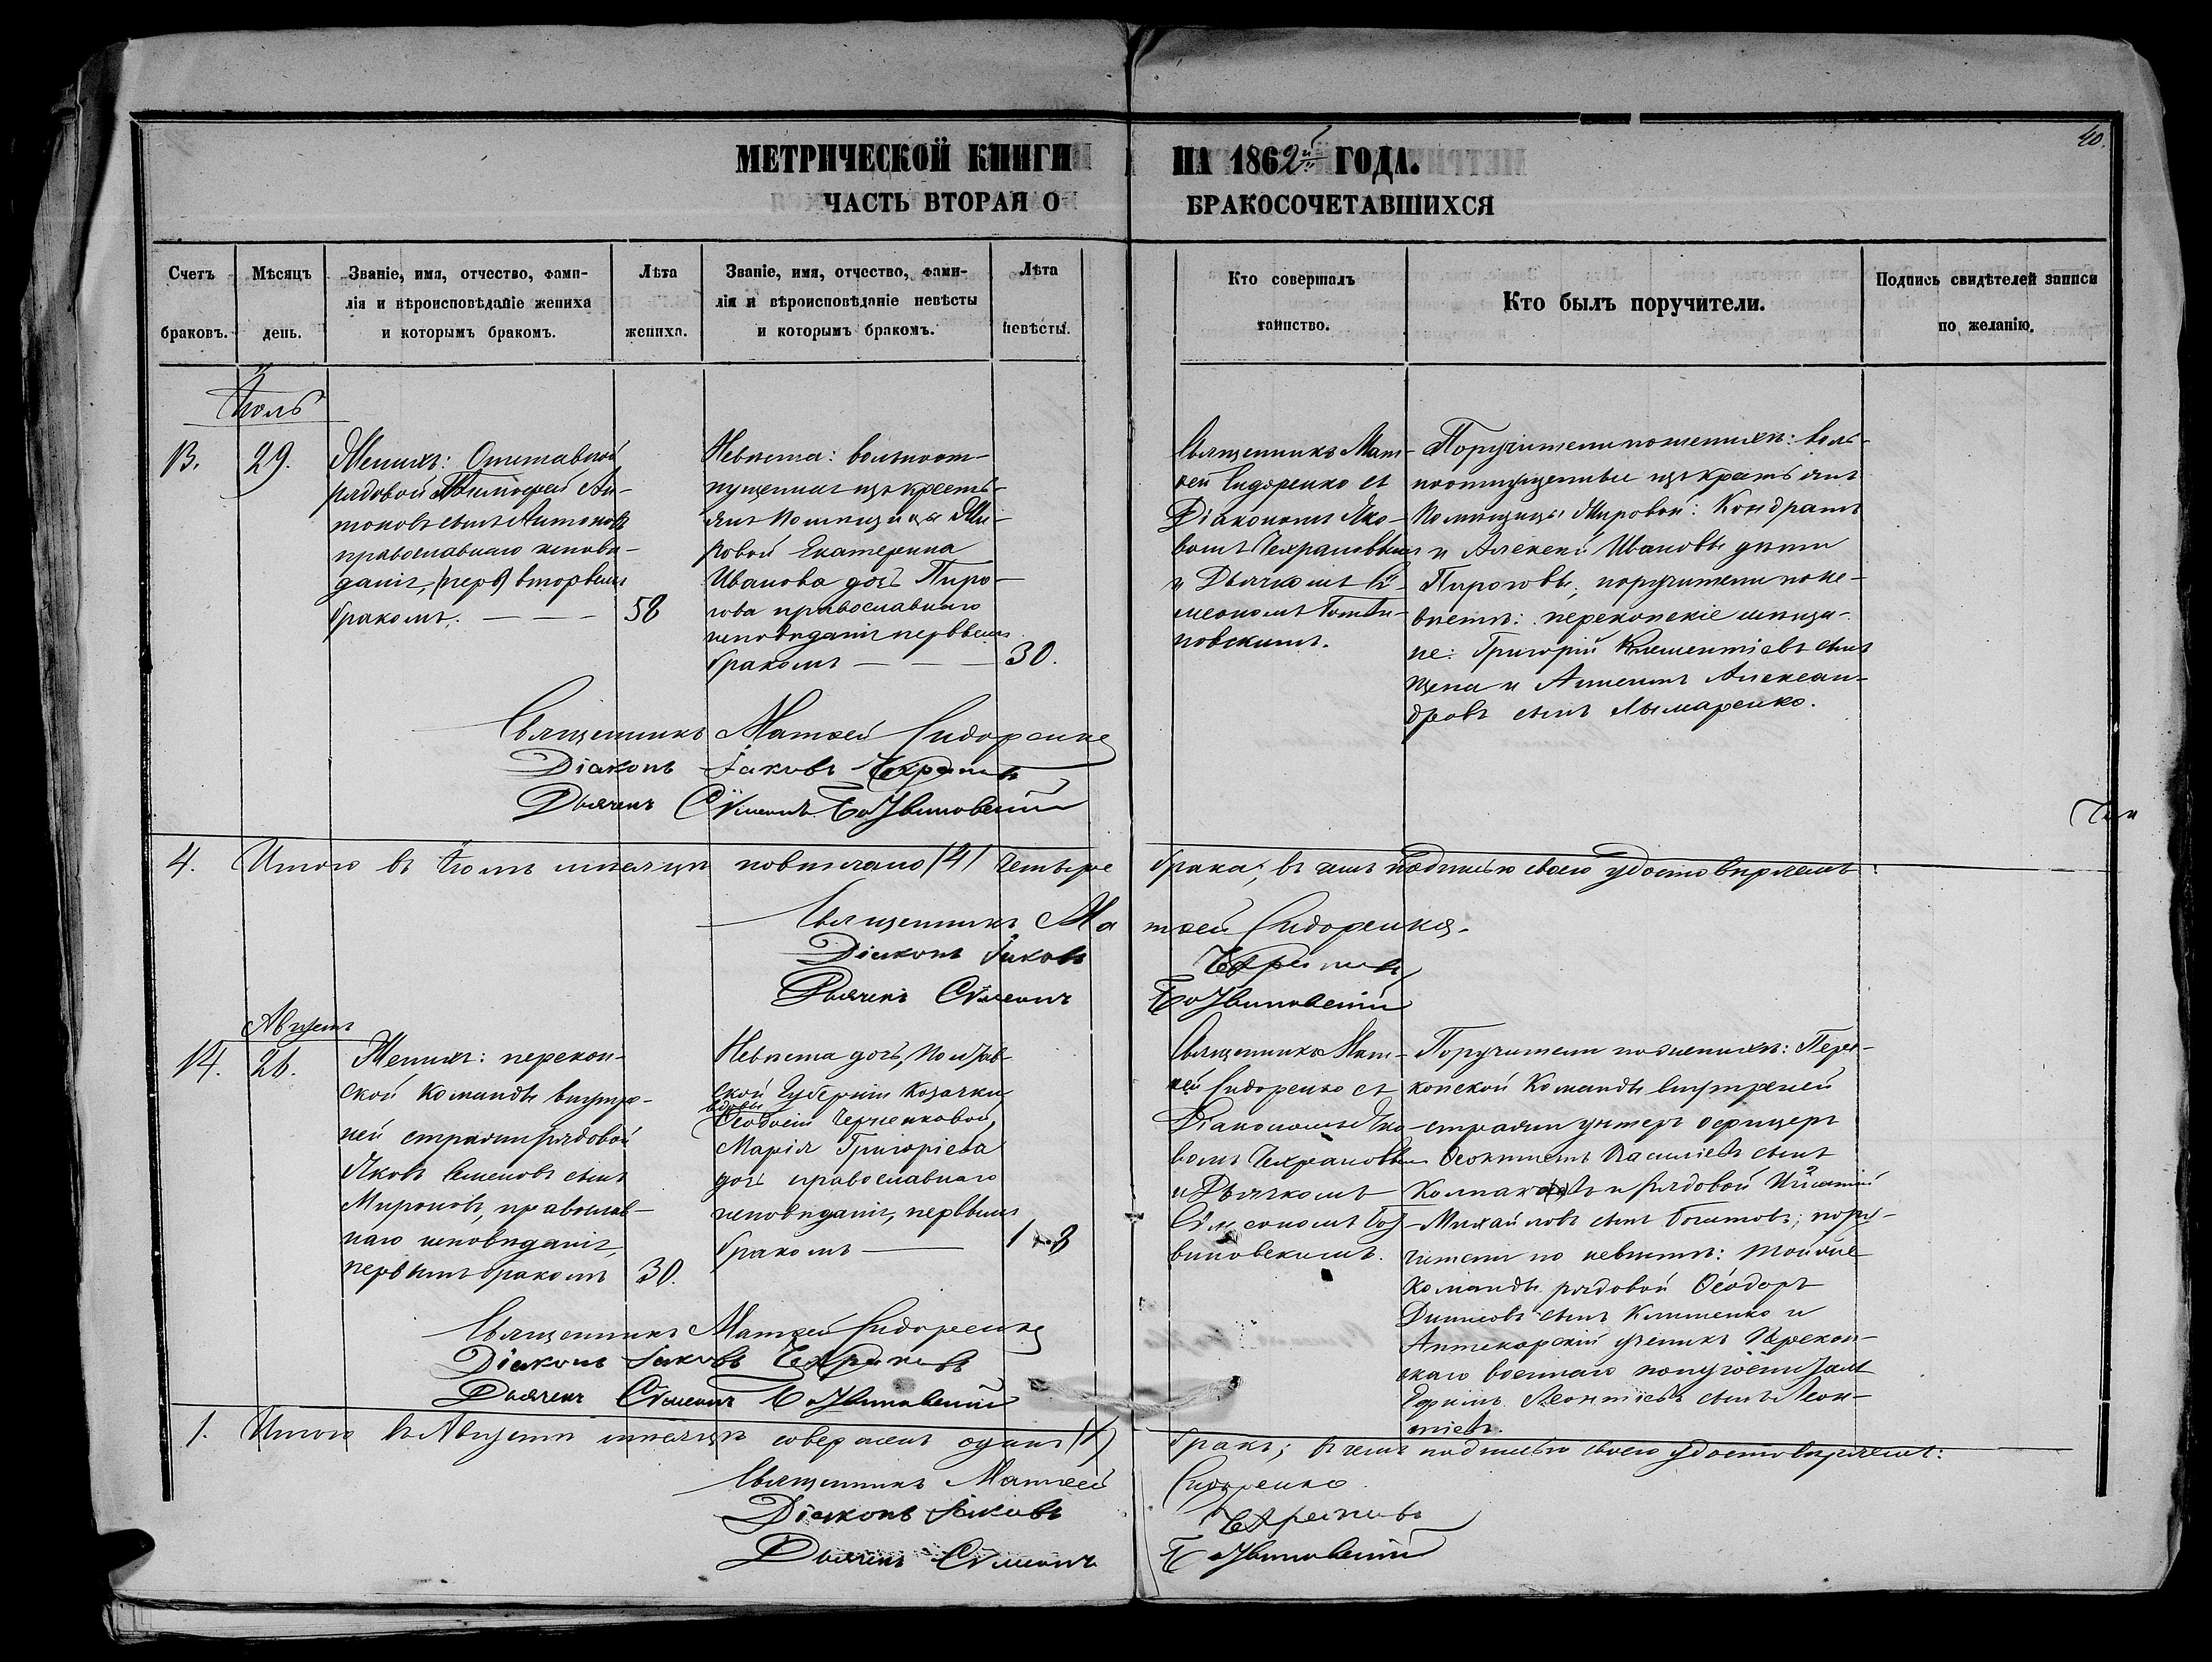 40.
МЕТРИЧЕСКОЙ КНИГИ НА 1862й ГОДА.
ЧАСТЬ ВТОРАЯ О БРАКОСОЧЕТАВШИХСЯ
Счетъ
браковъ.
Мѣсяцъ
день.
Званіе, имя, отчество, фами-
лія и вѣроисповѣданіе жениха
и которымъ бракомъ.
Лѣта
жениха.
Званіе, имя, отчество, фами-
лія и вѣроисповѣданіе невѣсты
и которымъ бракомъ.
Лѣта
невѣсты.
Кто совершалъ
таинство.
Кто былъ поручители.
Подпись свидѣтелей записи
по желанію.
Іюль
13.
29.
Женихъ: Отставной
рядовой Тимофей Ан-
тоновъ сынъ Антоновъ
православнаго исповѣ-
данія, (перв) вторымъ
бракомъ.
58
Невѣста: вольноот-
пущенная изъ кресть-
янъ Помѣщицы Жи-
ровой Екатерина
Иванова дочь Пиро-
гова православнаго
исповѣданія первымъ
бракомъ
30.
Священникъ Мат-
ѳей Сидоренко съ
Діакономъ Яко-
вомъ Чехрановымъ
и Дьячкомъ Сѵ-
меономъ
новскимъ.
Поручители по женихѣ: воль-
ноотпущенные изъ крестьянъ
Помѣщицы Жировой: Кондратъ
и Алексѣй Ивановы дѣти
Пироговы; поручители по не-
вѣстѣ: перекопскіе мѣща-
не: Григорій Климентіевъ сынъ
Цепа и Алексан-
дровъ сынъ Лымаренко.
Священникъ Матѳей Сидоренко
Діаконъ Іаковъ Чехрановъ
Дьячекъ Сѵмеонъ Богвиновскій
4. Итого въ Іюлѣ мѣсяцѣ повѣнчано (4) четыре брака; въ чемъ подписью своею удостовѣряемъ:
Священникъ Матѳей Сидоренко.
Діаконъ Іаковъ Чехрановъ
Дьячекъ Сѵмеонъ Богвиновскій
Августъ
14.
26.
Женихъ: перекоп-
ской Команды внутре-
ней стражи рядовой
Яковъ Семеновъ сынъ
Мироновъ, православ-
наго исповѣданія,
первымъ бракомъ
30.
Невѣста дочь, Полтав-
ской Губерніи Козачки
вдовы
Ѳеодосіи Черненковой,
Марія Григоріева
дочь православнаго
исповѣданія, первымъ
бракомъ
18
Священникъ Мат-
ѳей Сидоренко съ
Діакономъ Яко-
вомъ Чехрановымъ
и Дьячкомъ
Сѵмеономъ Бог-
виновскимъ.
Поручители по женихѣ: Пере-
копской Команды внутреней
стражи унтеръ офицеръ
Ѳеоктистъ Васильевъ сынъ
Колпаковъ и рядовой Игнатій
Михайловъ сынъ Богатовъ; пору-
чители по невѣстѣ: той же
Команды рядовой Ѳеодоръ
Денисовъ сынъ Клименко и
Аптекарскій ученикъ Перекоп-
скаго военнаго полугоспиталя
Ефимъ Леонтіевъ сынъ Леон-
тіевъ.
Священникъ Матѳей Сидоренко
Діаконъ Іаковъ Чехрановъ
Дьячекъ Сѵмеонъ Богвиновскій
1. Итого въ Августѣ мѣсяцѣ совершенъ одинъ (1) бракъ; въ чемъ подписью своею удостовѣряемъ:
Священникъ Матѳей Сидоренко
Діаконъ Іаковъ Чехрановъ
Дьячекъ Сѵмеонъ Богвиновскій